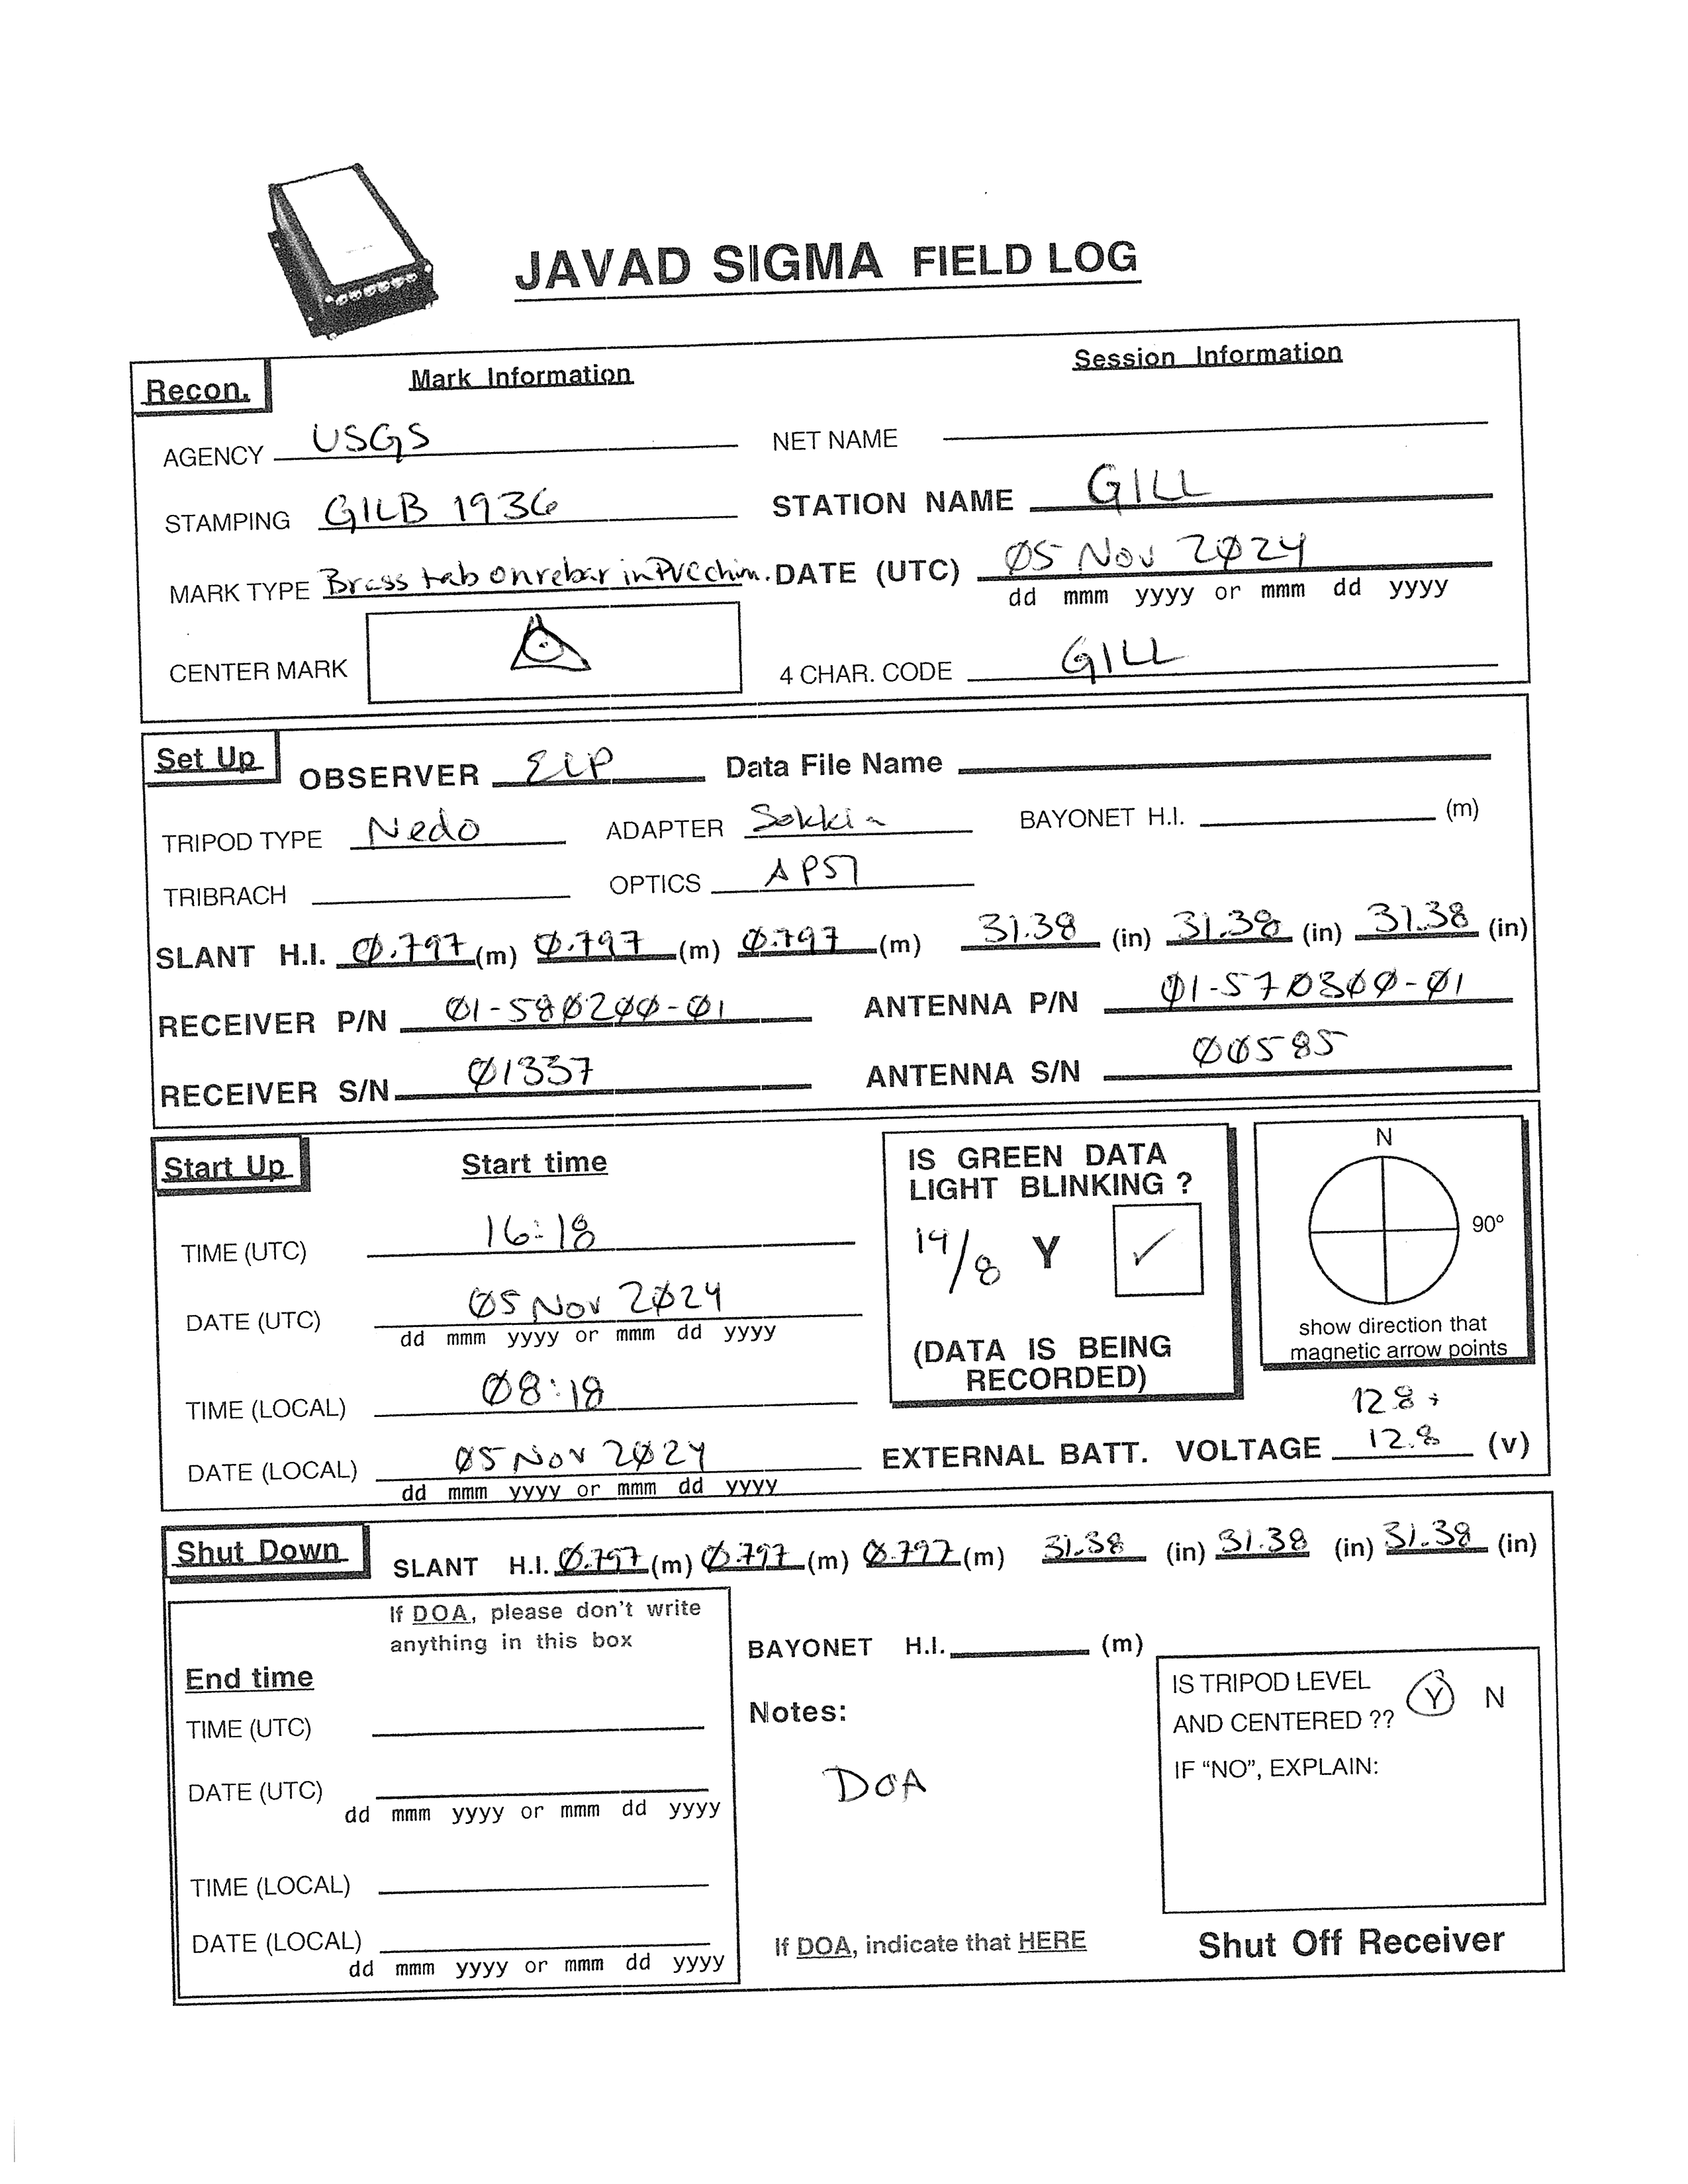 JAVAD SIGMA FIELD LOG
Recon. Mark Information Session Information
AGENCY USGS NET NAME
STAMPING GILB 1936 STATION NAME GILL
MARK TYPE Brass tab on rebar in PVC chim. DATE (UTC) 05 Nov 2024
dd mmm yyyy or mmm dd yyyy
CENTER MARK 4 CHAR. CODE GILL
Set Up OBSERVER ELP Data File Name
TRIPOD TYPE Nedo ADAPTER Sokkia BAYONET H.I. (m)
TRIBRACH OPTICS
SLANT H.I. 0.797 (m) 0.797 (m) 0.797 (m) 31.38 (in) 31.38 (in) 31.38 (in)
RECEIVER P/N 01-580200-01 ANTENNA P/N 01-570300-01
RECEIVER S/N 01337 ANTENNA S/N 00585
Start Up Start time
IS GREEN DATA LIGHT BLINKING ?
19/8 Y ✓
(DATA IS BEING RECORDED)
N
90°
show direction that
magnetic arrow points
TIME (UTC) 16:18
DATE (UTC) 05 Nov 2024
dd mmm yyyy or mmm dd yyyy
TIME (LOCAL) 08:18
DATE (LOCAL) 05 Nov 2024
dd mmm yyyy or mmm dd yyyy
12.8 +
EXTERNAL BATT. VOLTAGE 12.8 (v)
Shut Down SLANT H.I. 0.797 (m) 0.797 (m) 0.797 (m) 31.38 (in) 31.38 (in) 31.38 (in)
If DOA, please don't write
anything in this box
End time
TIME (UTC)
DATE (UTC)
dd mmm yyyy or mmm dd yyyy
TIME (LOCAL)
DATE (LOCAL)
dd mmm yyyy or mmm dd yyyy
BAYONET H.I. (m)
Notes:
DOA
If DOA, indicate that HERE
IS TRIPOD LEVEL
AND CENTERED ?? Y N
IF "NO", EXPLAIN:
Shut Off Receiver